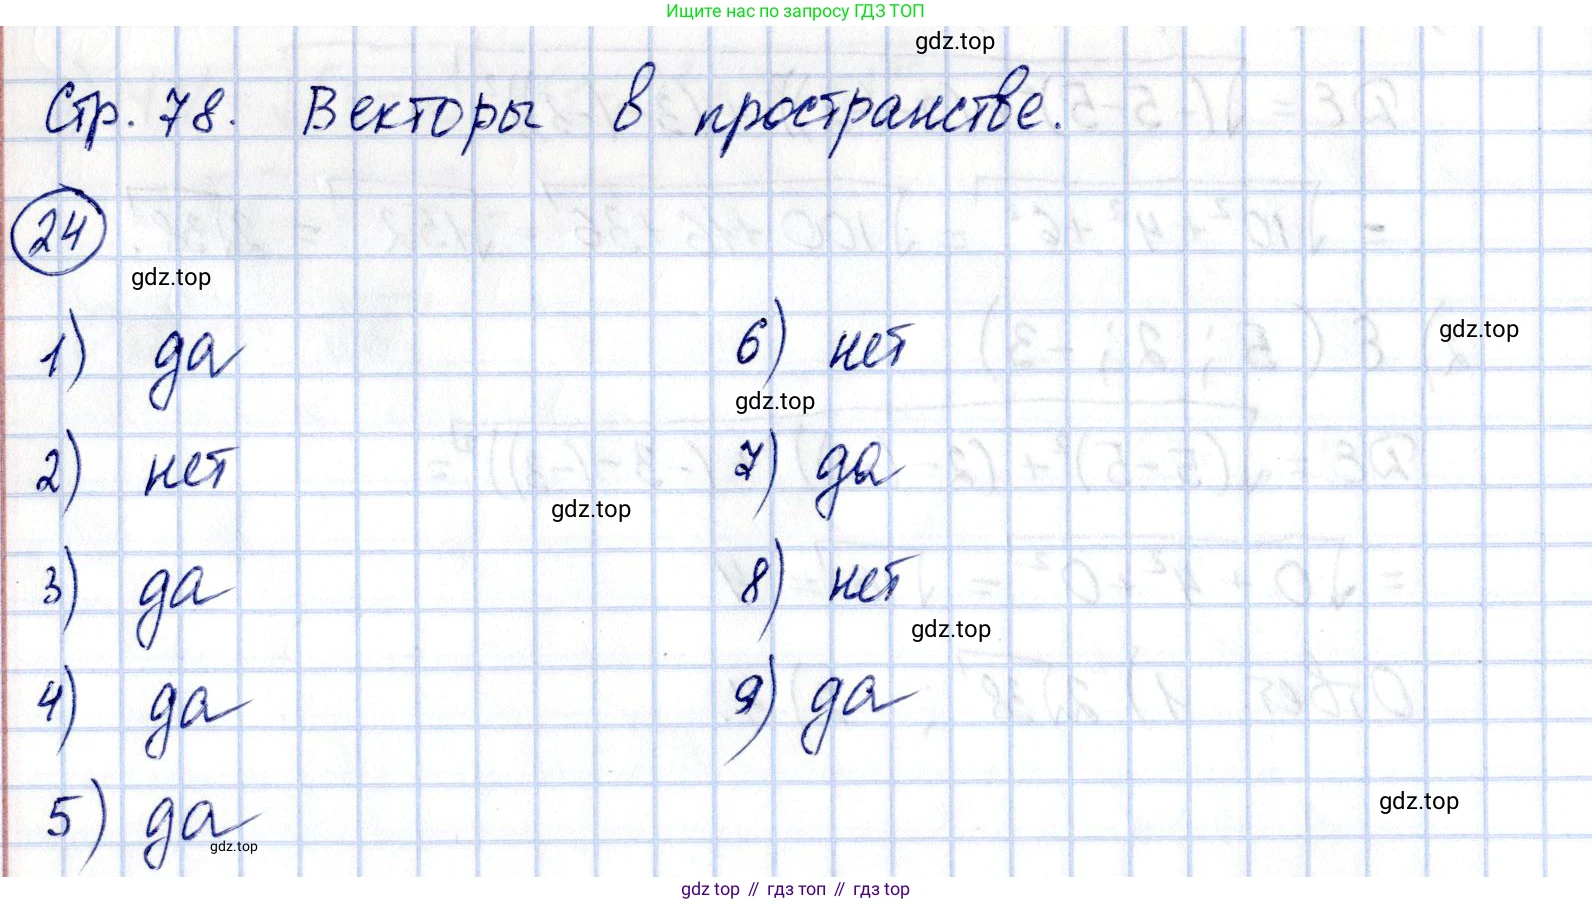 Ищите нас по запросу ГДЗ ТОП
gdz.top
Стр. 78. Векторы в пространстве.
24
gdz.top
1) да
6) нет
gdz.top
gdz.top
2) нет
7) да
gdz.top
3) да
8) нет
gdz.top
4) да
9) да
gdz.top
5) да
gdz.top
gdz top // гдз топ // гдз top